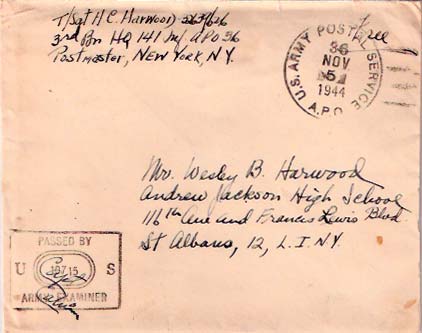 T/Sgt H C Harwood
3rd Bn HQ 141 Inf APO 36
Postmaster, NEW YORK, N.Y.
Free
U.S. ARMY POSTAL SERVICE
36
NOV
5
1944
A.P.O.
Mr. Wesley B. Harwood
Andrew Jackson High School
116th Ave and Francis Lewis Blvd
St Albans, 12, L.I. N.Y.
PASSED BY
U S
ARMY EXAMINER